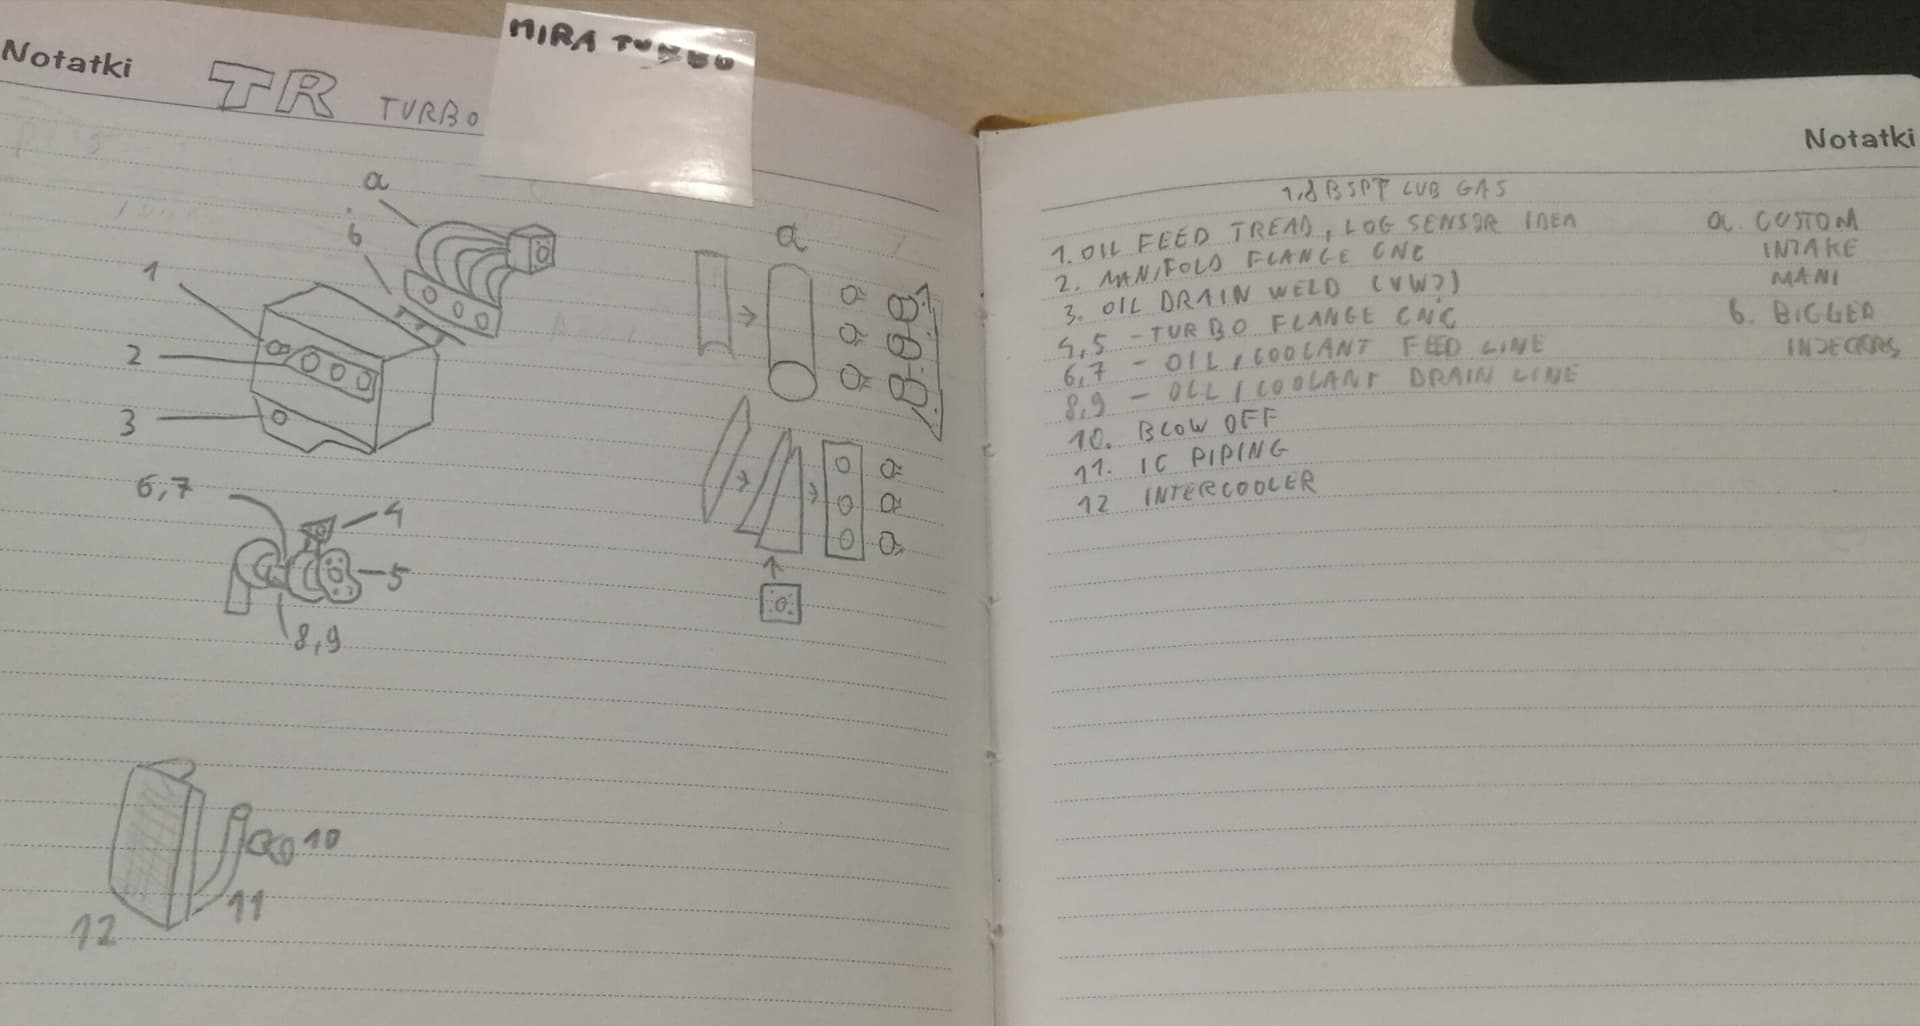 Notatki
TR TURBO
MIRA TURBO
a
b
1
2
3
a
6,7
4
5
8,9
10
11
12
Notatki
1,8 BSPT LUB GAS
1. OIL FEED TREAD, LOG SENSOR IDEA
2. MANIFOLD FLANGE CNC
3. OIL DRAIN WELD (VW?)
4,5 - TURBO FLANGE CNC
6,7 - OIL / COOLANT FEED LINE
8,9 - OLL / COOLANT DRAIN LINE
10. BLOW OFF
11. IC PIPING
12 INTERCOOLER
a. CUSTOM
INTAKE
MANI
b. BIGGER
INJECORS